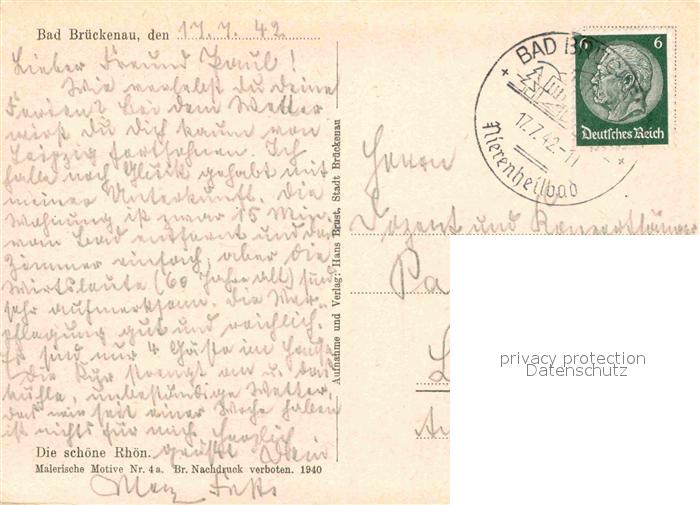 Bad Brückenau, den 17.7.42
Lieber Freund Paul!
Wie verlebst du deine
Ferien? Bei dem Wetter
wirst du dich kaum von
Leipzig fortsehnen. Ich
habe noch Glück gehabt mit
meiner Unterkunft. Die
Wohnung ist zwar 15 Min.
vom Bad entfernt und das
Zimmer einfach, aber die
Wirtsleute (60 Jahre alt) sind
sehr aufmerksam. Die Ver-
pflegung gut und reichlich.
Es sind nur 4 Gäste im Hause.
Die Kur strengt an u. das
kühle, unbeständige Wetter,
das wir seit einer Woche haben
ist nichts für mich. Herzlich
grüßt Dein
Max
Die schöne Rhön.
Malerische Motive Nr. 4a. Br. Nachdruck verboten. 1940
Aufnahme und Verlag: Hans Brust, Stadt Brückenau
BAD BR
17.7.42-11
Nierenheilbad
6 6
Deutsches Reich
Herrn
Dozent und Konzertsänger
Pa
L
privacy protection
Datenschutz